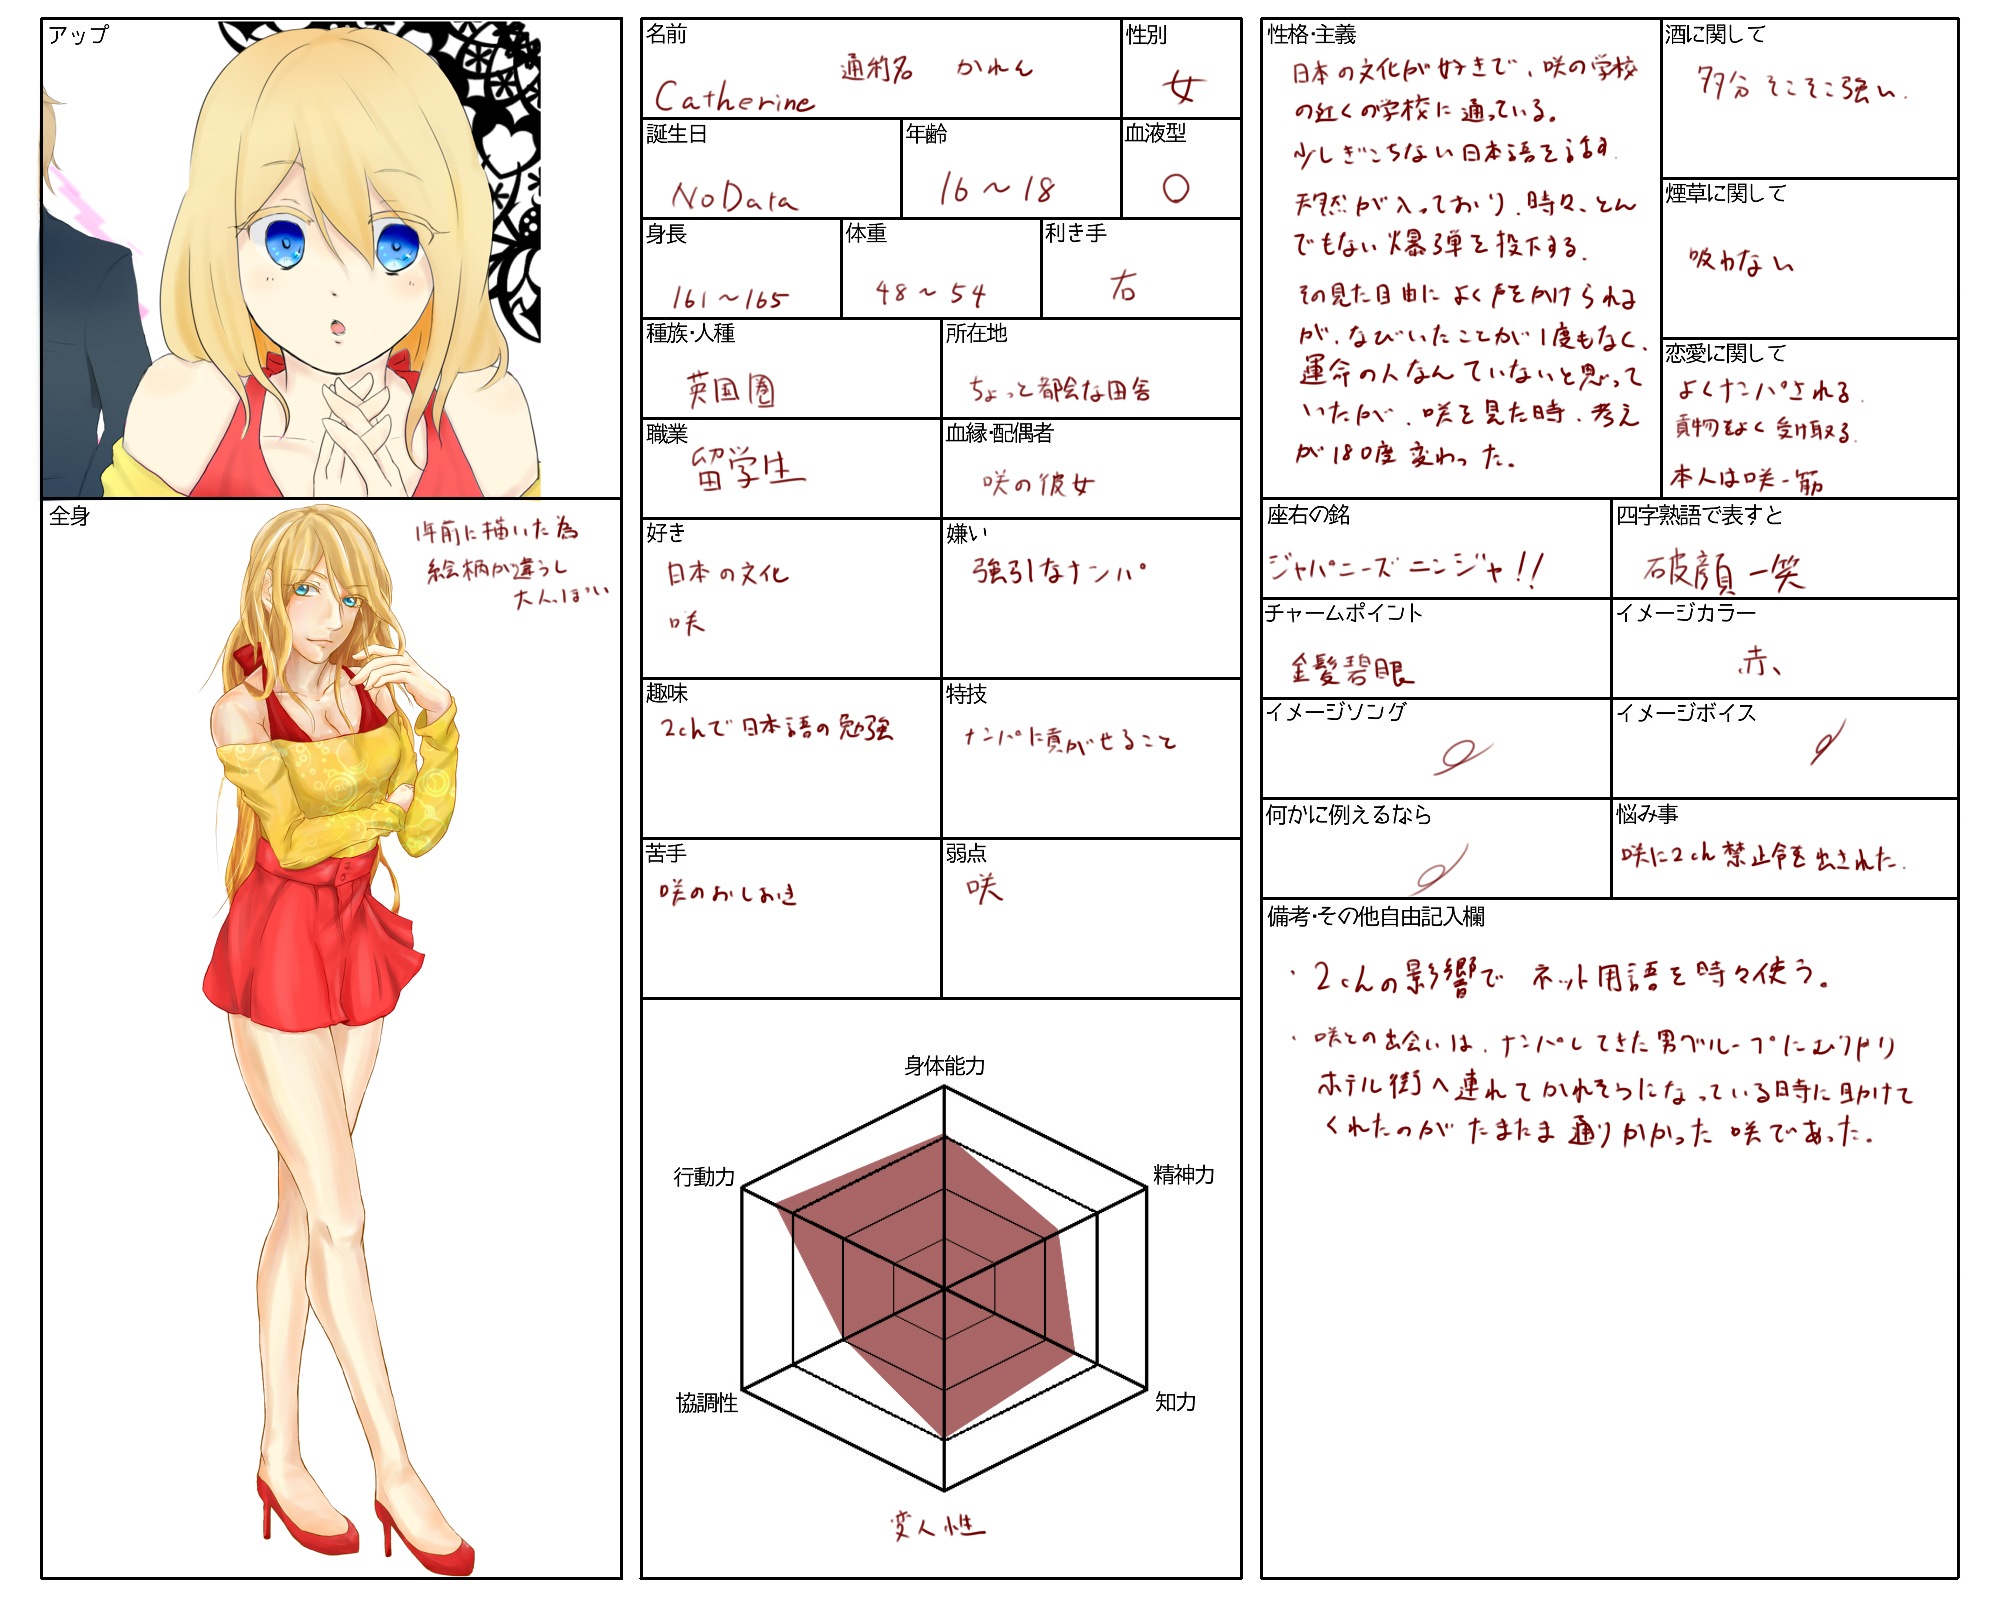 アップ
全身
1年前に描いた為
絵柄が違うし
大人っぽい
名前
通称名 かれん
Catherine
性別
女
誕生日
NoData
年齢
16～18
血液型
O
身長
161～165
体重
48～54
利き手
右
種族・人種
英国圏
所在地
ちょっと都会な田舎
職業
留学生
血縁・配偶者
咲の彼女
好き
日本の文化
咲
嫌い
強引なナンパ
趣味
2chで日本語の勉強
特技
ナンパに貢がせること
苦手
咲のおしおき
弱点
咲
身体能力
精神力
知力
変人性
協調性
行動力
性格・主義
日本の文化が好きで、咲の学校
の近くの学校に通っている。
少しぎこちない日本語を話す.
天然が入っており、時々、とん
でもない爆弾を投下する.
その見た目由によく声をかけられる
が、なびいたことが1度もなく、
運命の人なんていないと思って
いたが、咲を見た時、考え
が180度変わった。
酒に関して
多分そこそこ強い.
煙草に関して
吸わない
恋愛に関して
よくナンパされる.
貢物をよく受け取る.
本人は咲一筋
座右の銘
ジャパニーズニンジャ!!
四字熟語で表すと
破顔一笑
チャームポイント
金髪碧眼
イメージカラー
赤、
イメージソング
イメージボイス
何かに例えるなら
悩み事
咲に2ch禁止令を出された.
備考・その他自由記入欄
・2chの影響で ネット用語を時々使う。
・咲との出会いは、ナンパしてきた男グループにむりやり
ホテル街へ連れてかれそうになっている時に助けて
くれたのがたまたま通りかかった咲であった。